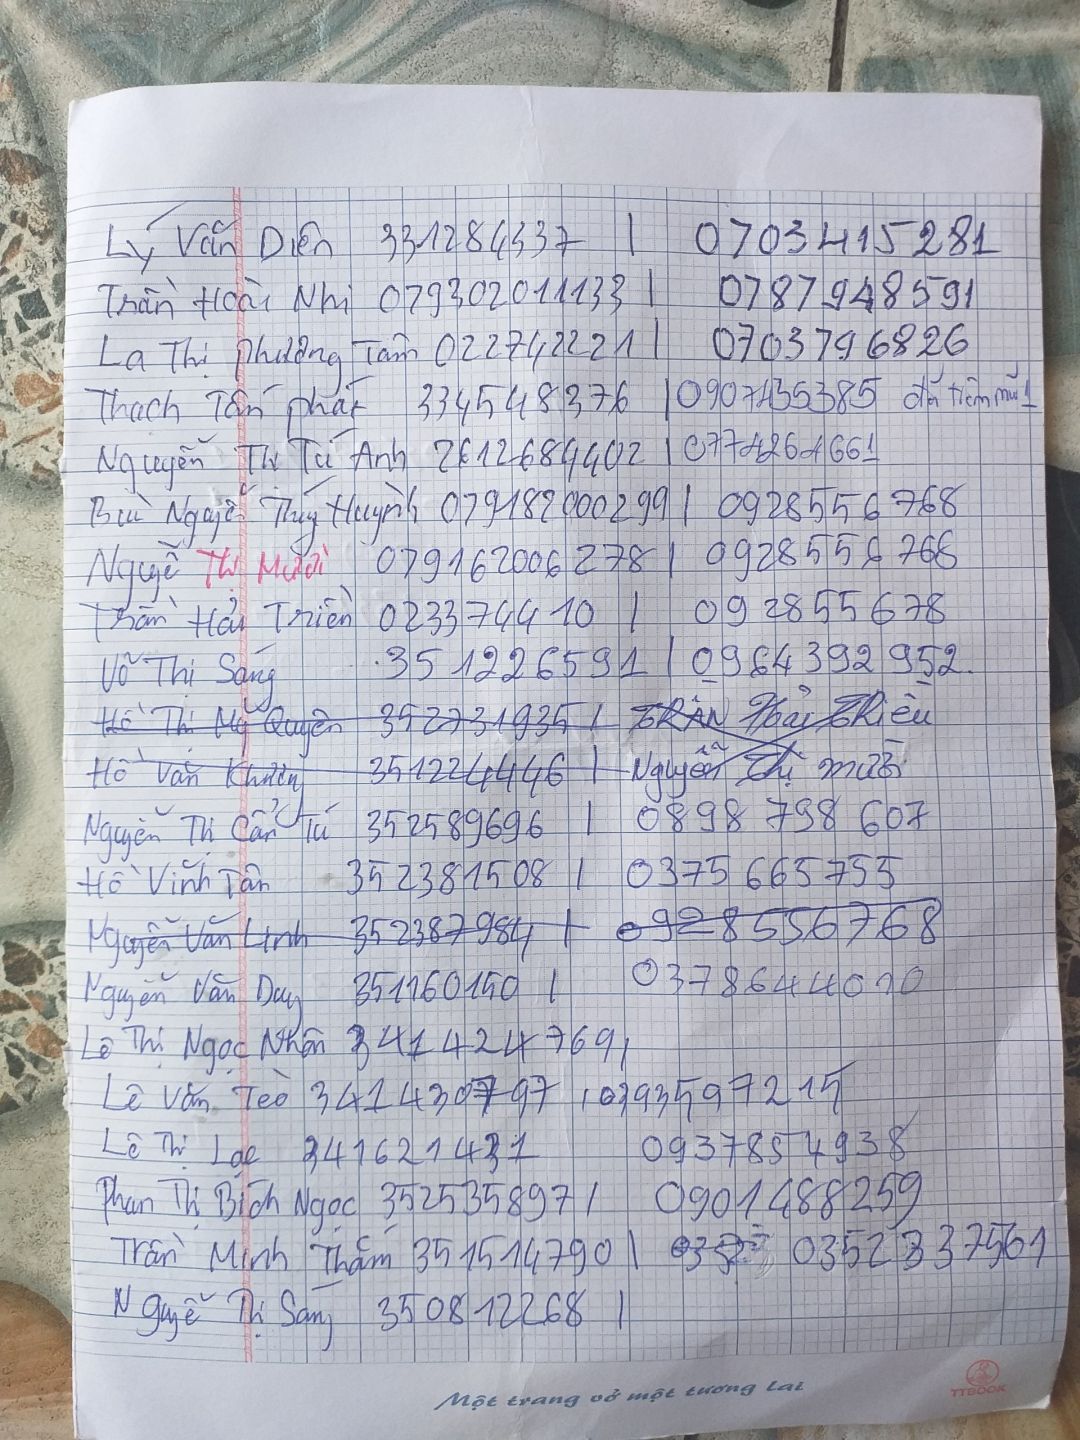 Lý Văn Diên 331284337 | 0703415281
Trần Hoài Nhi 079302011133 | 0787948591
La Thị Phương Tam 022742221 | 0703796826
Thạch Tấn phát 334548376 | 0907435385 đã tiêm mũi 1
Nguyễn Thị Tú Anh 2612684402 | 0774264661
Bùi Nguyễ Thúy Huỳnh 079182000299 | 0928556768
Nguyễ Thị Mười 079162006278 | 0928556768
Trần Hải Triền 023374410 | 092855678
Võ Thị Sáng 351226591 | 0964392952.
Hồ Thị Mỹ Quyên 352731935 | TRẦN Hải TRiều
Hồ Văn 351224446 | Nguyễn Thị mười
Nguyễn Thị Cẩm Tú 352589696 | 0898 798 607
Hồ Vĩnh Tân 352381508 | 0375 665 755
Nguyễn Văn Linh 352387984 | 0928556768
Nguyễn Văn Duy 351160150 | 0378644010
Lê Thị Ngọc Nhân 341424769 |
Lê Văn Tèo 341430797 | 0393597215
Lê Thị Lạc 341621431 0937854938
Phan Thị Bích Ngọc 352535897 | 0901488259
Trần Minh Thắm 351514790 | 0352337561
Nguyễ Thị Sáng 350812268 |
Một trang vở một tương lai
TTBOOK